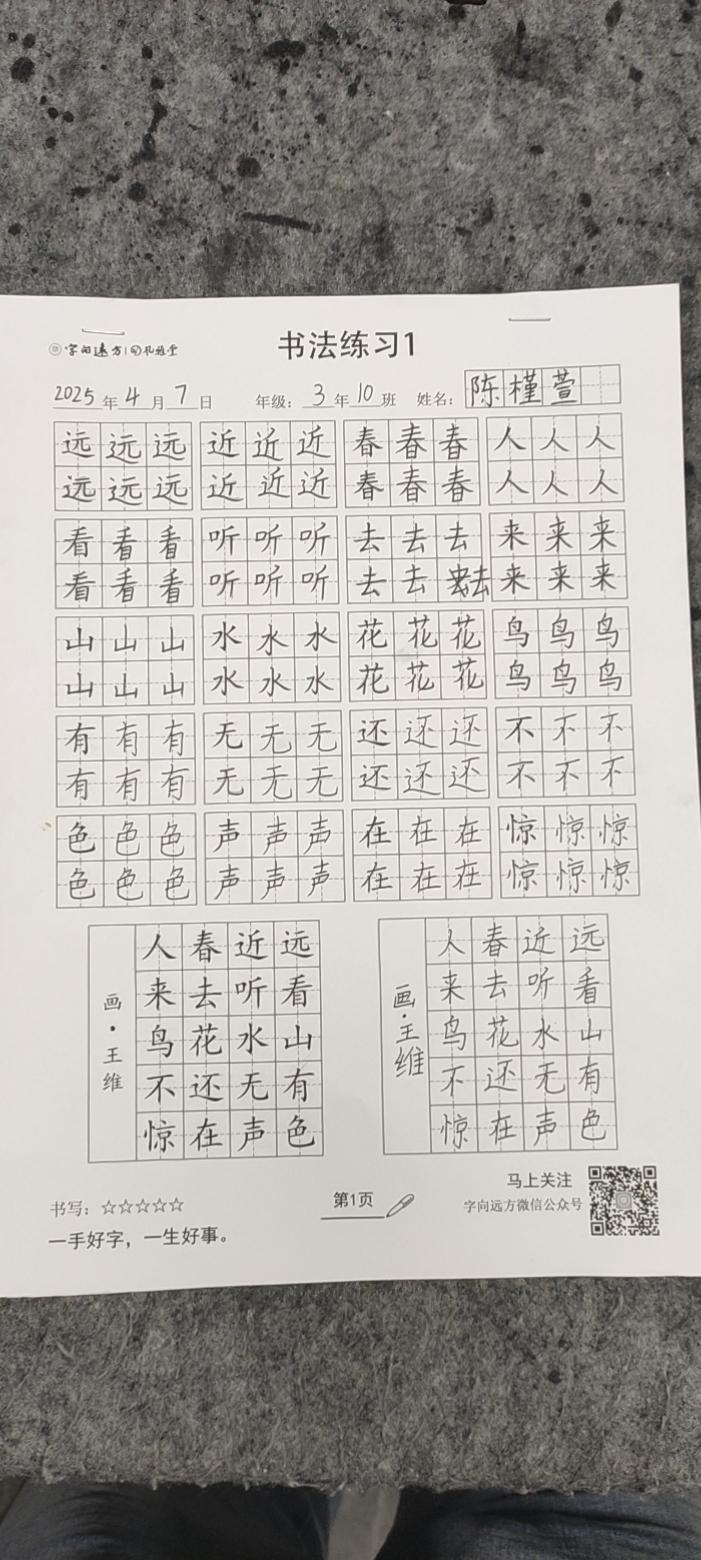 字向远方
书法练习1
2025年4月7日 年级：3年10班 姓名：陈槿萱
远远远 近近近 春春春 人人人
远远远 近近近 春春春 人人人
看看看 听听听 去去去 来来来
看看看 听听听 去去去 来来来
山山山 水水水 花花花 鸟鸟鸟
山山山 水水水 花花花 鸟鸟鸟
有有有 无无无 还还还 不不不
有有有 无无无 还还还 不不不
色色色 声声声 在在在 惊惊惊
色色色 声声声 在在在 惊惊惊
远看山有色
近听水无声
春去花还在
人来鸟不惊
画·王维
远看山有色
近听水无声
春去花还在
人来鸟不惊
画·王维
书写：☆☆☆☆☆
一手好字，一生好事。
第1页
马上关注
字向远方微信公众号